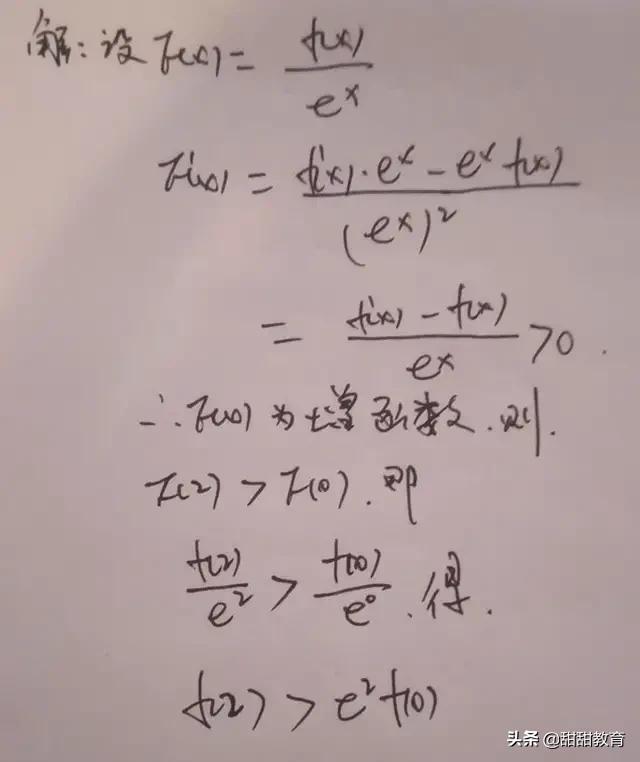 解:设F(x) = f(x)/e^x
F'(x) = (f'(x)·e^x - e^x f(x))/(e^x)^2
= (f'(x) - f(x))/e^x >0.
∴F(x)为增函数.则.
F(2) > F(0).即
f(2)/e^2 > f(0)/e^0.得.
f(2) > e^2 f(0)
头条 @甜甜教育